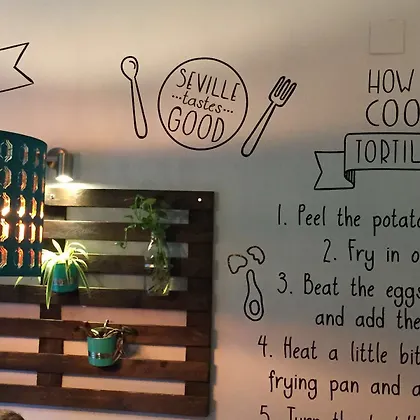 SEVILLE
tastes
GOOD
HOW
COO
TORTIL
1. Peel the potat
2. Fry in o
3. Beat the eggs
and add the
4. Heat a little bit
frying pan and a
5. Turn the